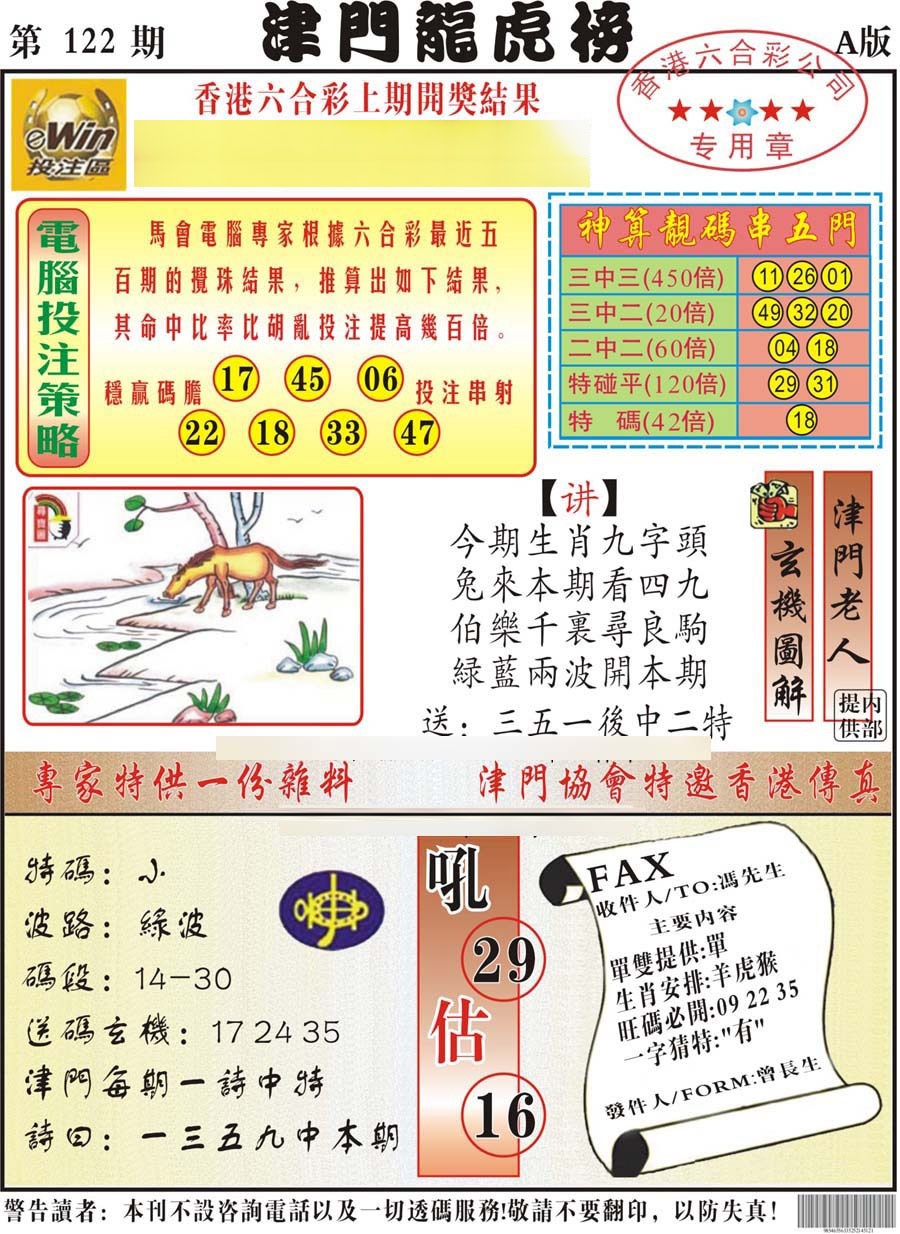 第 122 期
津門龍虎榜
A版
香港六合彩公司
专用章
eWin
投注區
香港六合彩上期開獎結果
電腦投注策略
馬會電腦專家根據六合彩最近五
百期的攪珠結果，推算出如下結果，
其命中比率比胡亂投注提高幾百倍。
穩贏碼膽 17 45 06 投注串射
22 18 33 47
神算靚碼串五門
三中三(450倍) 11 26 01
三中二(20倍) 49 32 20
二中二(60倍) 04 18
特碰平(120倍) 29 31
特 碼(42倍) 18
尋寶圖
【讲】
今期生肖九字頭
兔來本期看四九
伯樂千裏尋良駒
緑藍兩波開本期
送：三五一後中二特
玄機圖解
津門老人
内部提供
專家特供一份雜料
津門協會特邀香港傳真
特碼：小
波路：綠波
碼段：14-30
送碼玄機：17 24 35
津門每期一詩中特
詩曰：一三五九中本期
吼
29
估
16
FAX
收件人/TO:馮先生
主要内容
單雙提供:單
生肖安排:羊虎猴
旺碼必開:09 22 35
一字猜特:"有"
發件人/FORM:曾長生
警告讀者：本刊不設咨詢電話以及一切透碼服務!敬請不要翻印，以防失真！